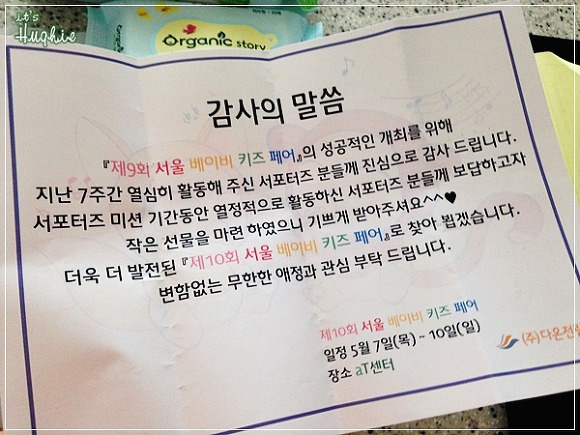 it's
Hughie
Organic story
감사의 말씀
『제9회 서울 베이비 키즈 페어』의 성공적인 개최를 위해
지난 7주간 열심히 활동해 주신 서포터즈 분들께 진심으로 감사 드립니다.
서포터즈 미션 기간동안 열정적으로 활동하신 서포터즈 분들께 보답하고자
작은 선물을 마련 하였으니 기쁘게 받아주셔요^^♥
더욱 더 발전된 『제10회 서울 베이비 키즈 페어』로 찾아 뵙겠습니다.
변함없는 무한한 애정과 관심 부탁 드립니다.
제10회 서울 베이비 키즈 페어
일정 5월 7일(목) ~ 10일(일)
장소 aT센터
(주)다온전람